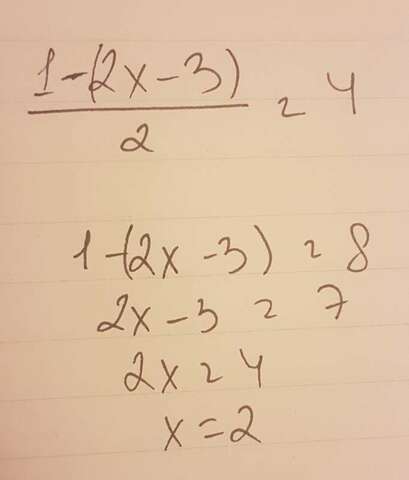 1-(2x-3)
2
= 4
1-(2x-3) = 8
2x-3 = 7
2x = 4
x = 2